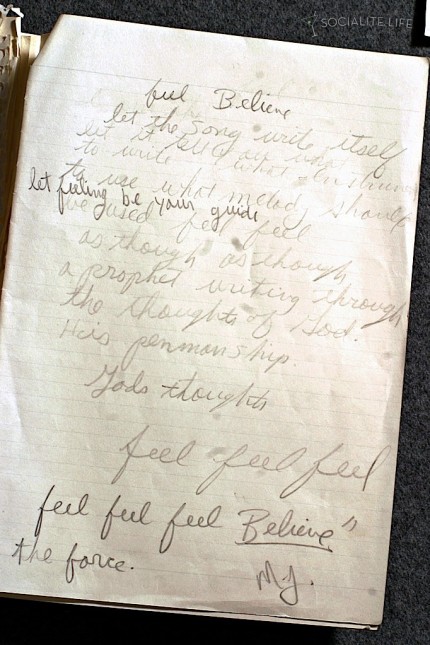 SOCIALITE.LIFE
feel Believe
let the song write itself
let it tell you what
to write what instruments
to use what melody should
let feeling be your guide
be used feel feel
as though as though
a prophet writing through
the thoughts of God.
His penmanship.
Gods thoughts
feel feel feel
feel feel feel Believe"
the force.
MJ.